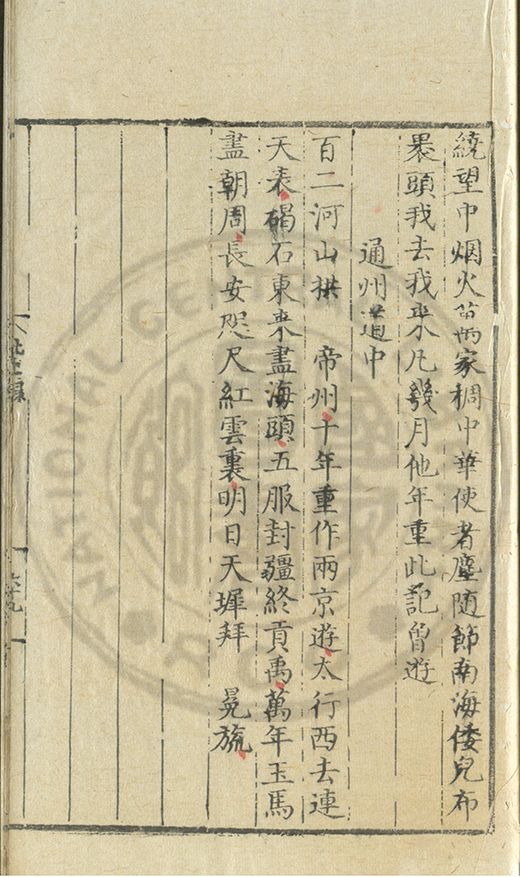 繞望中烟火萬家稠中華使者塵随節南海倭兒布
褁頭我去我来凡幾月他年重此記曾遊
通州道中
百二河山拱 帝州十年重作兩京遊太行西去連
天表碣石東来盡海頭五服封疆終貢禹萬年玉馬
盡朝周長安咫尺紅雲裏明日天墀拜 冕旒